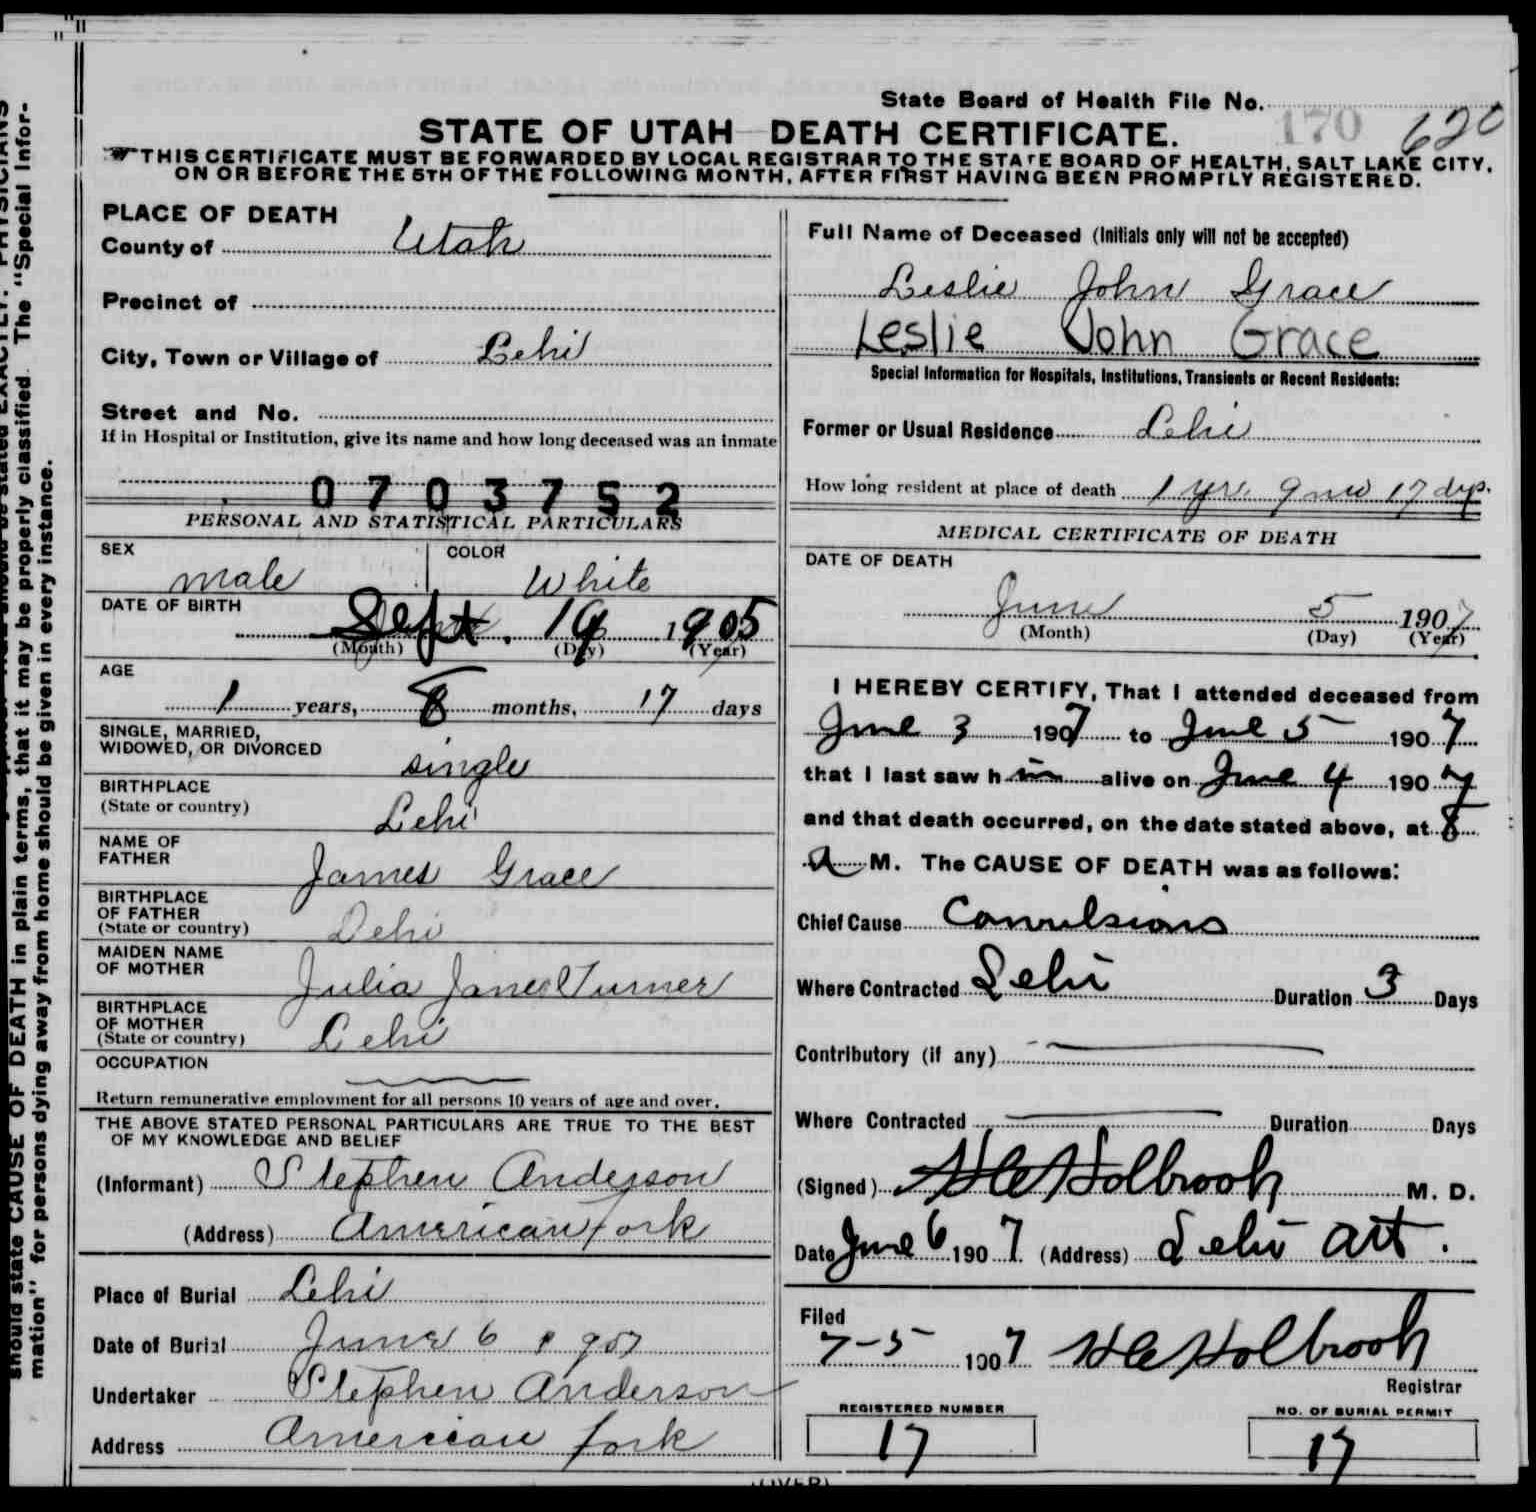 State Board of Health File No. 170 620
STATE OF UTAH DEATH CERTIFICATE.
THIS CERTIFICATE MUST BE FORWARDED BY LOCAL REGISTRAR TO THE STATE BOARD OF HEALTH, SALT LAKE CITY,
ON OR BEFORE THE 5TH OF THE FOLLOWING MONTH, AFTER FIRST HAVING BEEN PROMPTLY REGISTERED.
should state CAUSE OF DEATH in plain terms, that it may be properly classified. The "Special Infor-
mation" for persons dying away from home should be given in every instance.
PLACE OF DEATH
County of Utah
Precinct of
City, Town or Village of Lehi
Street and No.
If in Hospital or Institution, give its name and how long deceased was an inmate
0703752
PERSONAL AND STATISTICAL PARTICULARS
SEX male COLOR White
DATE OF BIRTH Sept. 19 1905
(Month) (Day) (Year)
AGE
1 years, 8 months, 17 days
SINGLE, MARRIED,
WIDOWED, OR DIVORCED single
BIRTHPLACE
(State or country) Lehi
NAME OF
FATHER James Grace
BIRTHPLACE
OF FATHER
(State or country) Lehi
MAIDEN NAME
OF MOTHER Julia Jane Turner
BIRTHPLACE
OF MOTHER
(State or country) Lehi
OCCUPATION
Return remunerative employment for all persons 10 years of age and over.
THE ABOVE STATED PERSONAL PARTICULARS ARE TRUE TO THE BEST
OF MY KNOWLEDGE AND BELIEF
(Informant) Stephen Anderson
(Address) American fork
Place of Burial Lehi
Date of Burial June 6 1907
Undertaker Stephen Anderson
Address American fork
Full Name of Deceased (Initials only will not be accepted)
Leslie John Grace
Leslie John Grace
Special Information for Hospitals, Institutions, Transients or Recent Residents:
Former or Usual Residence Lehi
How long resident at place of death 1 yr. 9 mo 17 dys.
MEDICAL CERTIFICATE OF DEATH
DATE OF DEATH
June 5 1907
(Month) (Day) (Year)
I HEREBY CERTIFY, That I attended deceased from
June 3 1907 to June 5 1907
that I last saw h im alive on June 4 1907
and that death occurred, on the date stated above, at 8
a M. The CAUSE OF DEATH was as follows:
Chief Cause Convulsions
Where Contracted Lehi Duration 3 Days
Contributory (if any)
Where Contracted Duration Days
(Signed) Holbrook M. D.
Date June 6 1907 (Address) Lehi
Filed
7-5 1907 Holbrook
Registrar
REGISTERED NUMBER
17
NO. OF BURIAL PERMIT
17
(OVER)